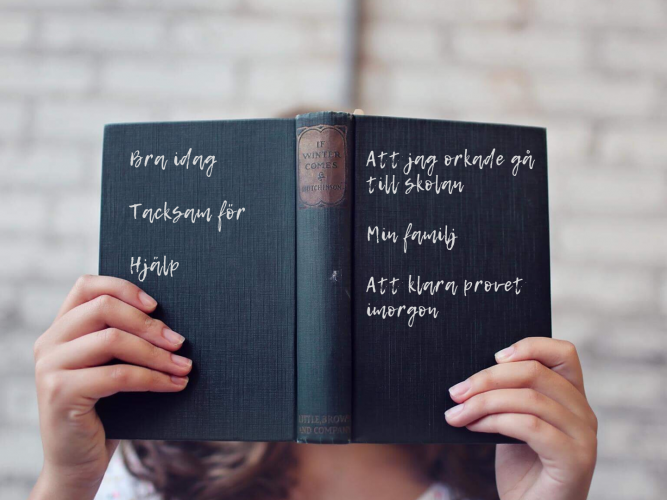 Bra idag
Tacksam för
Hjälp
IF
WINTER
COMES
&
HUTCHINSON
LITTLE, BROWN
AND COMPANY
Att jag orkade gå
till skolan
Min familj
Att klara provet
imorgon